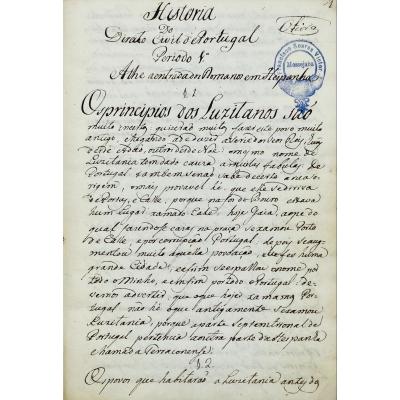 Historia
Do
Direito Civil de Portugal
Periodo 1º
Athe a entrada dos Romanos em Hespanha
§ 1
Os principios dos Luzitanos São
muito incertos, quizerão muitos fazer este povo muito
antigo, chegando a deduzir a serie dos seus Reys, huns
desde Adão, outros desde Noé: o mesmo nome de
Luzitania tem dado cauza a muitas fabulas. De
Portugal tambem se não sabe de certo a sua o-
rigem, o mais provavel hé, que elle se deriva
de Porto, e Calle, porque na foz do Douro estava
hum lugar chamado Cale, hoje Gaia, ao pe do
qual fazendose cazas na praça se chamou Porto
de Calle, e por corrupção Portugal; depois se aug-
mentou muito aquella povoação, e se fes huma
grande Cidade, e assim se espalhou o nome por
todo o Minho, e em fim por todo o Portugal: de-
vemos advertir, que o que hoje se chama Por-
tugal não hé o que antigamente se chamou
Luzitania, porque a parte Septentrional de
Portugal pertencia a outra parte da Hespanha
chamada Terraconense.
§ 2.
Os povos que habitarão a Luzitania antes da